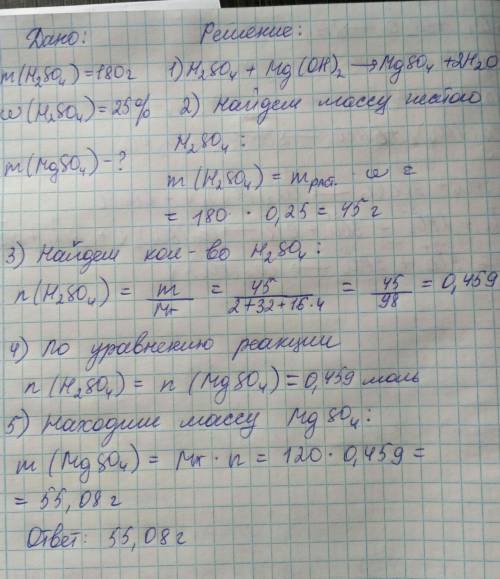 Дано: Решение:
m(H₂SO₄)=180г 1) H₂SO₄ + Mg(OH)₂ → MgSO₄ + 2H₂O
ω(H₂SO₄)=25% 2) Найдем массу чистого
H₂SO₄:
m(MgSO₄)-?
m(H₂SO₄) = mраст. · ω =
= 180 · 0,25 = 45 г
3) Найдем кол-во H₂SO₄:
n(H₂SO₄) = m/Mr = 45/2+32+16·4 = 45/98 = 0,459
4) По уравнению реакции
n(H₂SO₄) = n(MgSO₄) = 0,459 моль
5) Находим массу MgSO₄:
m(MgSO₄) = Mr · n = 120 · 0,459 =
= 55,08 г
Ответ: 55,08 г